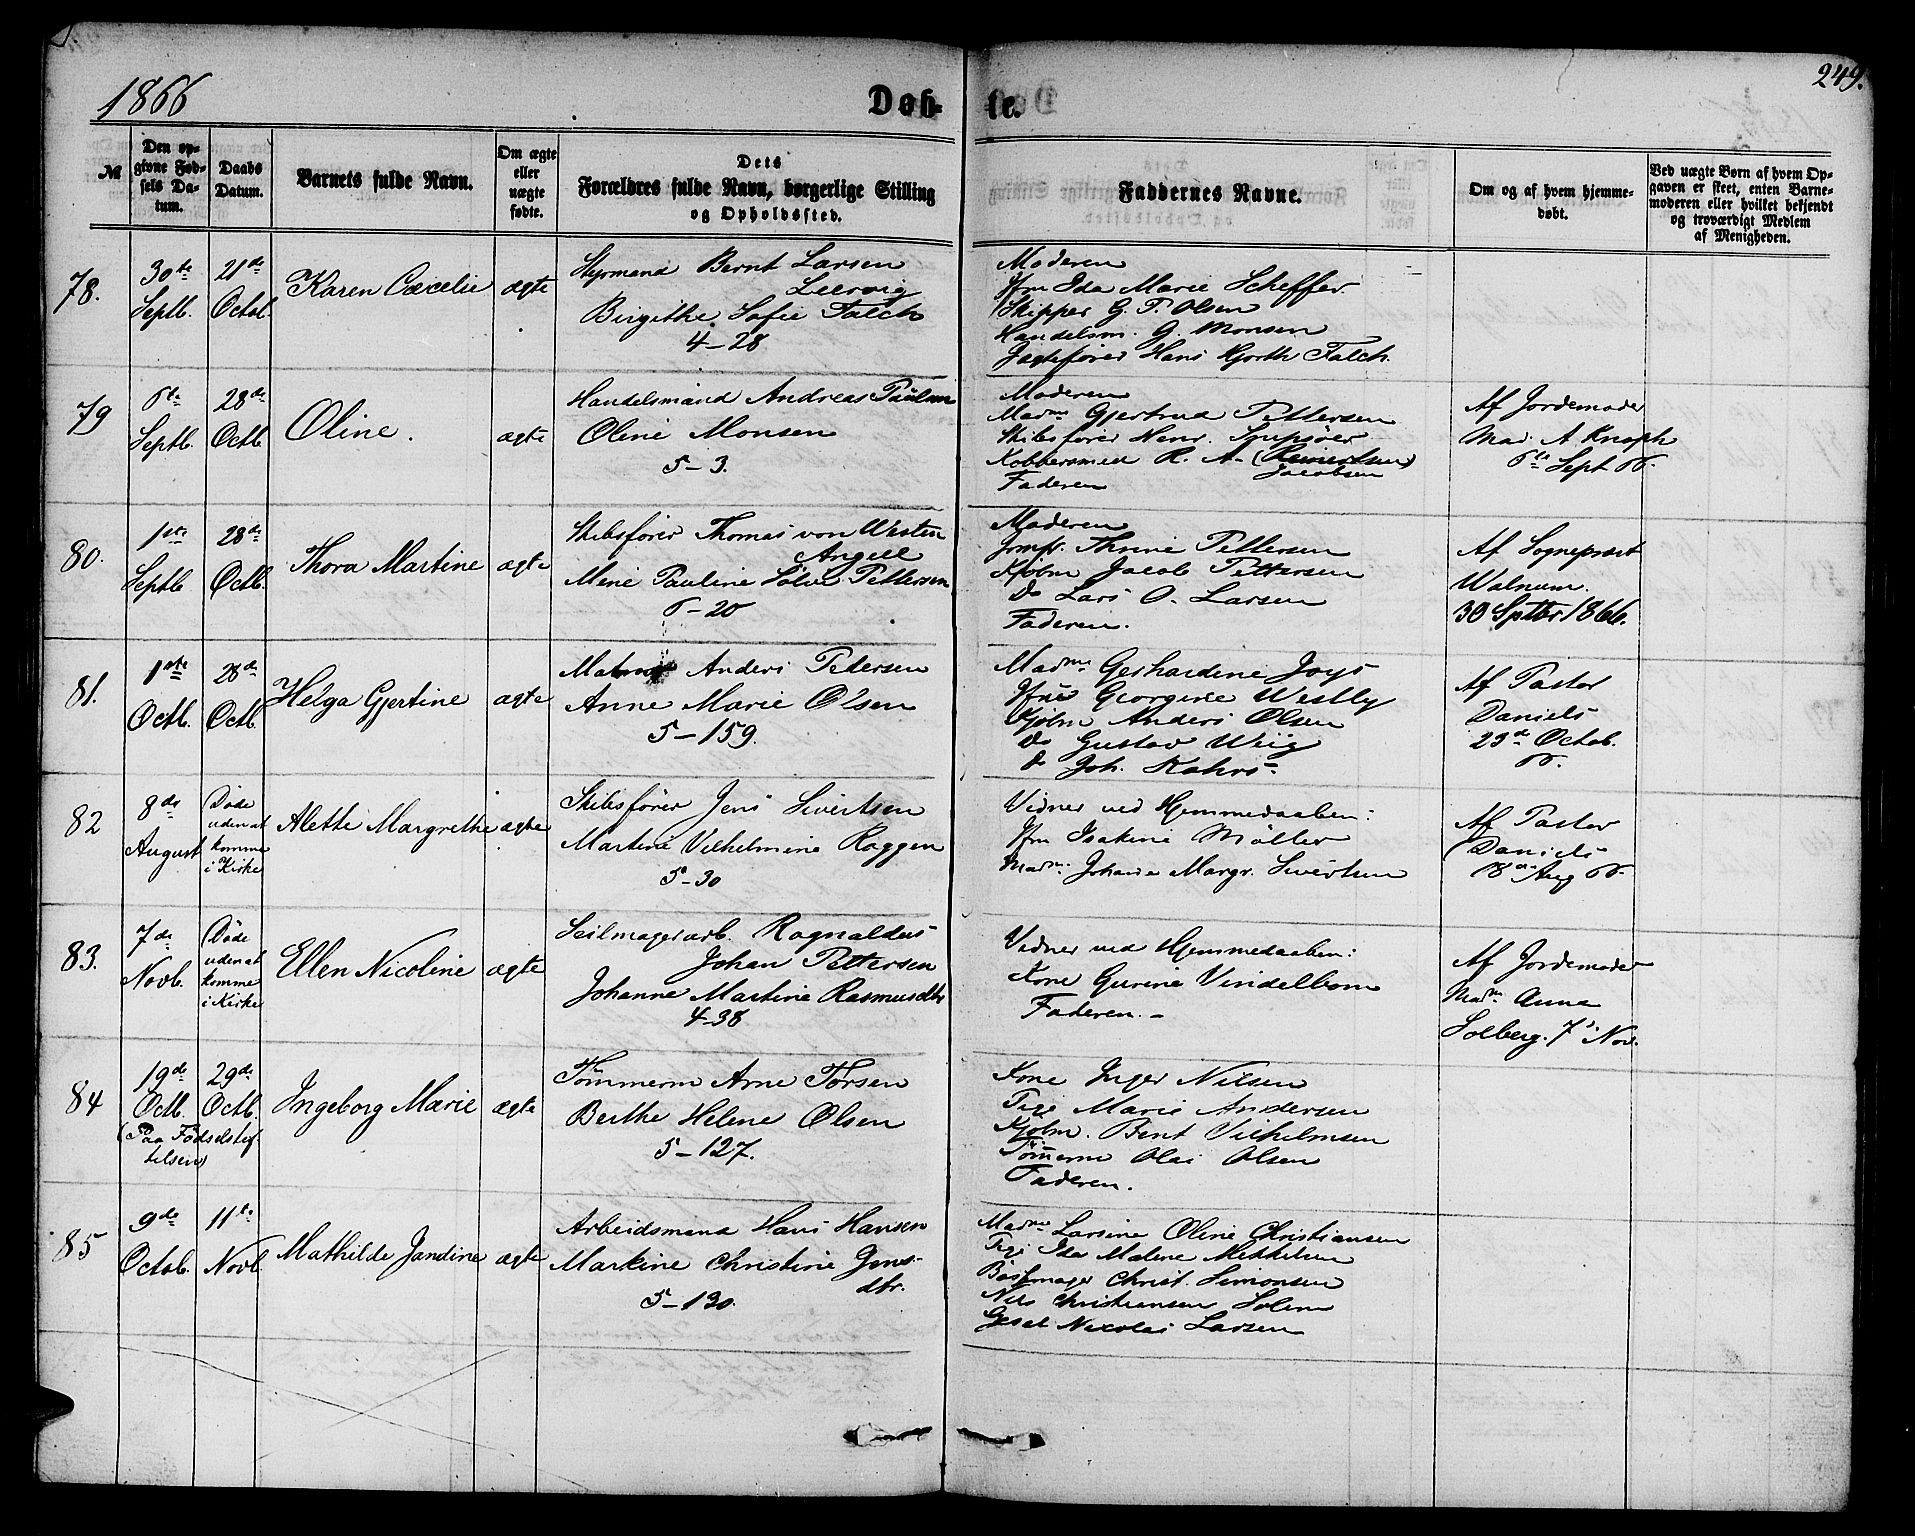 1866
Døb-
te.
249.
№
Den op-
givne Fød-
sels Da-
tum.
Daabs
Datum.
Barnets fulde Navn.
Om ægte
eller
uægte
fødte.
Dets
Forældres fulde Navn, borgerlige Stilling
og Opholdssted.
Faddernes Navne.
Om og af hvem hjemme-
døbt.
Ved uægte Børn af hvem Op-
gaven er skeet, enten Barne-
moderen eller hvilket bekjendt
og troværdigt Medlem
af Menigheden.
78.
30te
Septb.
21de
Octob.
Karen Cæcelie
ægte
Styrmand Bernt Larsen
Leervig
Birgithe Sofie Falch
4-28
Moderen
Jfru Ida Marie Scheffer.
Skipper G. T. Olsen
Handelsm. G. Monsen
Jagtefører Hans Hjorth Falch.
79
6te
Septb.
28de
Octb.
Oline.
ægte
Handelsmand Andreas Paulsen
Oline Monsen
5-3.
Moderen
Madme Gjertrud Pettersen
Skibsfører Henr.
Kobbersmed R. A. (Reinertsen)
Jacobsen
Faderen
Af Jordemoder
Mad. A Knaph
6te Sept 66.
80.
1ste
Septb
28de
Octb.
Thora Martine
ægte
Skibsfører Thomas von Westen
Angell
Mene Pauline Sølve Pettersen
6-20
Moderen
Jomfr. Thrine Pettersen
Kjøbm Jacob Pettersen
Do Lars O. Larsen
Faderen.
Af Sognepræst
Walnum.
30 Sptbr 1866.
81.
1ste
Octb.
28de
Octb.
Helga Gjertine
ægte
Matros Anders Petersen
Anne Marie Olsen
5-159.
Madme Gerhardine Joys
Jfrue Georgine Westby
Kjøbm Anders Olsen
Do Gustav Wiig
do Joh. Kahrs.
Af Pastor
Daniels
23de Octob.
66.
82
8de
August
(Døde
uden at
komme
i Kirke
Alette Margrethe
ægte
Skibsfører Jens Sivertsen
Martine Vilhelmine Roggen
5-30
Vidner ved Hjemmedaaben:
Jfru Isakine Møller
Madme Johanne Margr. Sivertsen
Af Pastor
(Daniels
18de Aug 66.
83.
7de
Novb.
(Døde
uden at
komme
i Kirke
Ellen Nicoline
ægte
Seilmagerarb. Ragnaldus
Johan Pettersen
Johanne Martine Rasmusdtr
4-38
Vidner ved Hjemmedaaben:
Kone Gurine Vindelbom
Faderen.
Af Jordemoder
Madm Anna
Solberg. 7de Nov.
84
19de
Octb.
(Paa Fødselstif-
telsen)
29de
Octb.
Ingeborg Marie
ægte
Tømmerm Arne Torsen
Berthe Helene Olsen
5-127.
Kone Inger Nilsen
Pige Marie Andersen
Kjøbm. Bent Vilhelmsen
Tømmerm Olai Olsen
Faderen.
85
9de
Octob.
11te
Novb.
Mathilde Jandine
ægte
Arbeidsmand Hans Hansen
Martine Christine Jens-
dtr.
5-130.
Madme Larsine Oline Christiansen
Pige Ida Malene Mikkelsen
Bøssmager Christ. Simonsen
Nils Christiansen Solem
Gesel Nicolai Larsen